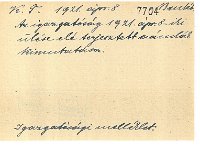 K. T. 1921. ápr. 8 7704
Az igazgatóság 1921. ápr. 8.-iki
ülése elé terjesztett
kimutatása.
Igazgatósági melléklet.